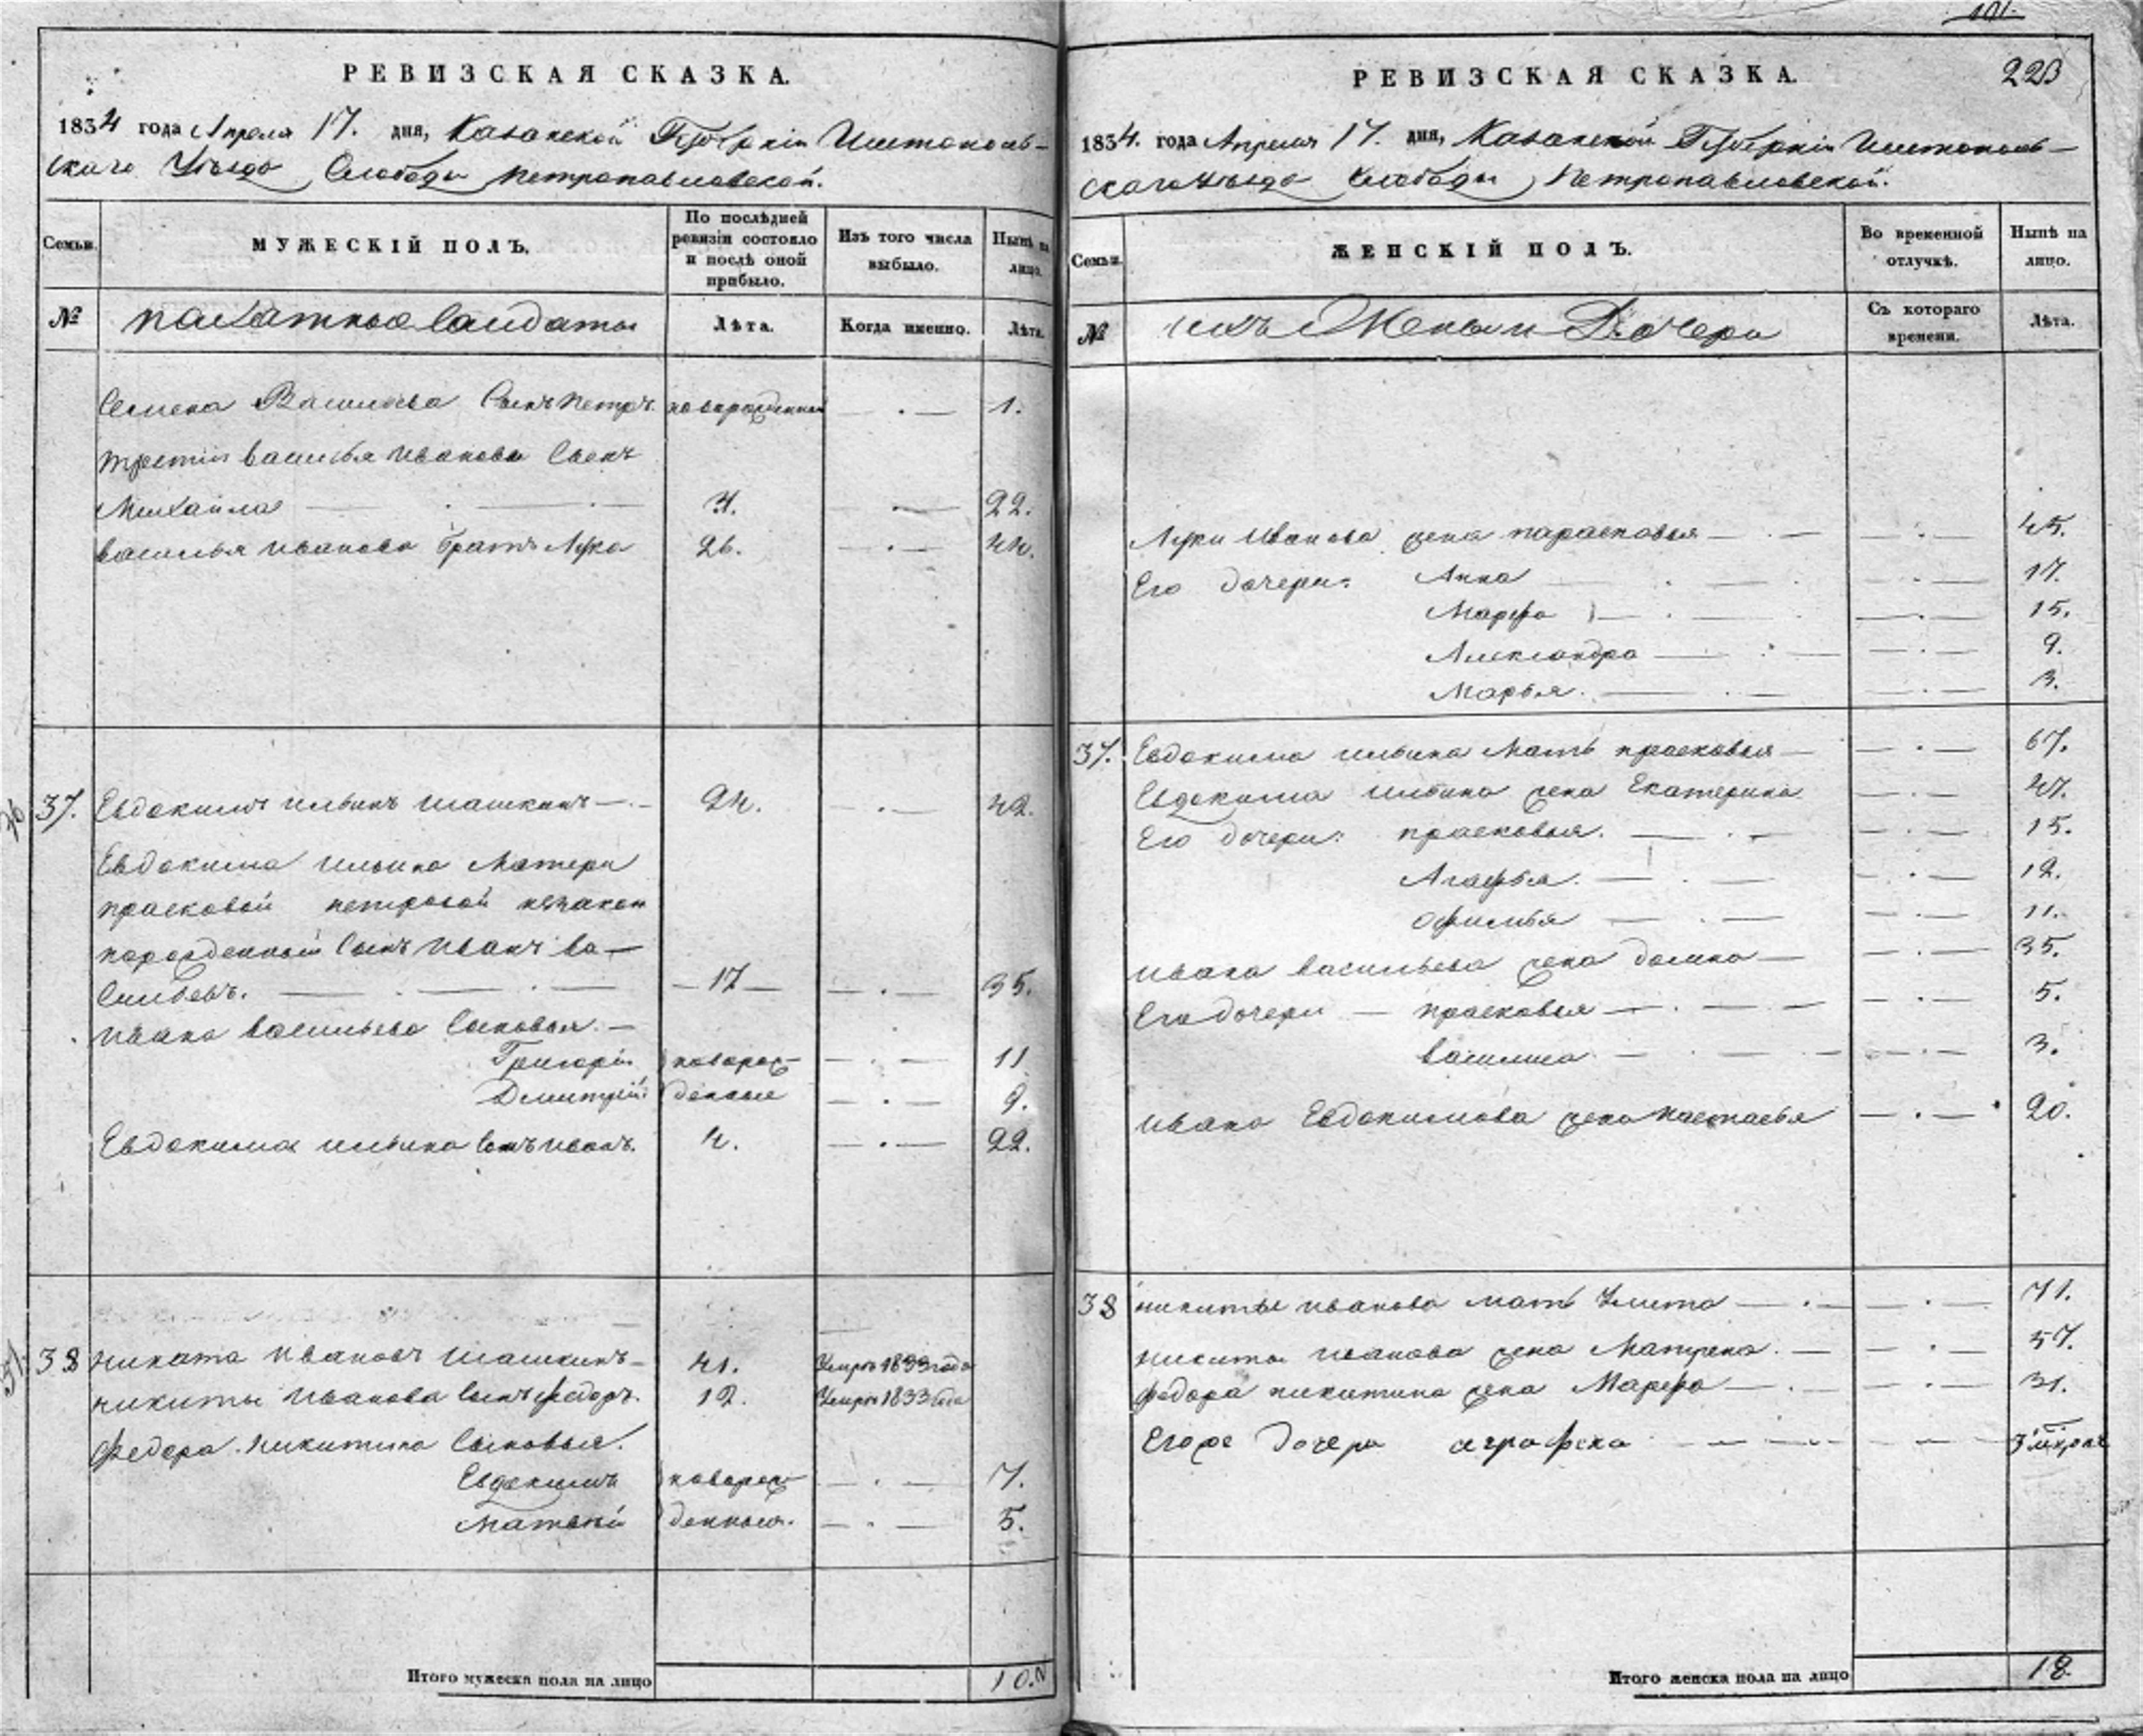 РЕВИЗСКАЯ СКАЗКА.
1834 года Апреля 17. дня, Казанской Губерніи Чистополь-
скаго Уѣзда Слободы Петропавловской.
Семьи.
МУЖЕСКІЙ ПОЛЪ.
По послѣдней ревизіи состояло и послѣ оной прибыло.
Изъ того числа выбыло.
Нынѣ на лицо.
№
пахатные Солдаты
Лѣта.
Когда именно.
Лѣта.
Семена Васильева Сынъ Петръ. новорожденной 1.
третій василья иванова Сынъ
Михайла 4. 22.
василья иванова братъ Лука 26. 44.
37. Евдокимъ ильинъ шашкинъ 24. 42.
Евдокима ильина Матери
прасковьи петровой незакон
норожденный Сынъ иванъ ва-
сильевъ. 17 35.
ивана васильева Сыновья.
Григорій новорож- 11
Дмитрій денные 9.
Евдокима ильина Сынъ иванъ. 4. 22.
38 никита ивановъ шашкинъ 41. Умеръ 1833 года
никиты иванова Сынъ федоръ. 12. Умеръ 1833 года
федора никитина Сыновья.
Евдокимъ новорож- 7.
Матвей денныя. 5.
Итого мужеска пола на лицо 10.
191.
РЕВИЗСКАЯ СКАЗКА. 223
1834. года Апреля 17. дня, Казанской Губерніи Чистополь-
скаго Уѣзда Слободы Петропавловской.
Семьи.
ЖЕНСКІЙ ПОЛЪ.
Во временной отлучкѣ.
Нынѣ на лицо.
№
ихъ Жены и Дочери
Съ котораго времени.
Лѣта.
Луки Иванова жена парасковья 45.
Его дочери: Анна 17.
Марфа 15.
Александра 9.
Марья. 3.
37. Евдокима ильина Мать прасковья 67.
Евдокима ильина жена Екатерина 47.
Его дочери: прасковья. 15.
Агафья. 12.
Офимья 11.
ивана васильева жена домна 35.
Его дочери прасковья 5.
василиса 3.
ивана Евдокимова жена настасья 20.
38 никиты иванова мать Улита 71.
никиты иванова жена Матрена. 57.
федора никитина жена Марфа 31.
Его же дочерь аграфена 3
Итого женска пола на лицо 18.